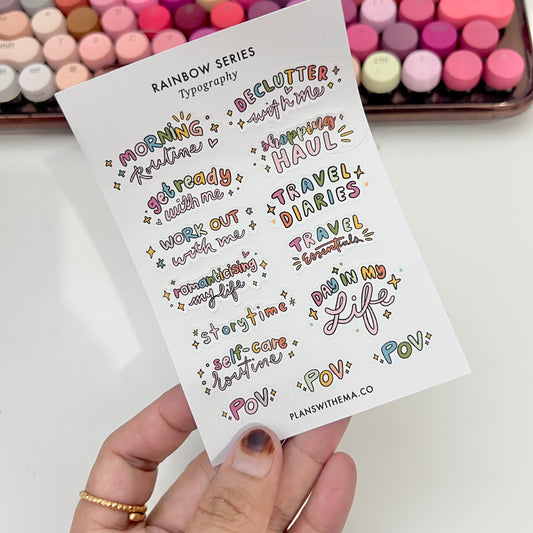 RAINBOW SERIES
Typography
MORNING
Routine
get ready
with me
WORK OUT
with me
romanticising
my life
storytime
self-care
routine
POV
DECLUTTER
with me
shopping
HAUL
TRAVEL
DIARIES
TRAVEL
Essentials
DAY IN MY
Life
POV
POV
PLANSWITHEMA.CO